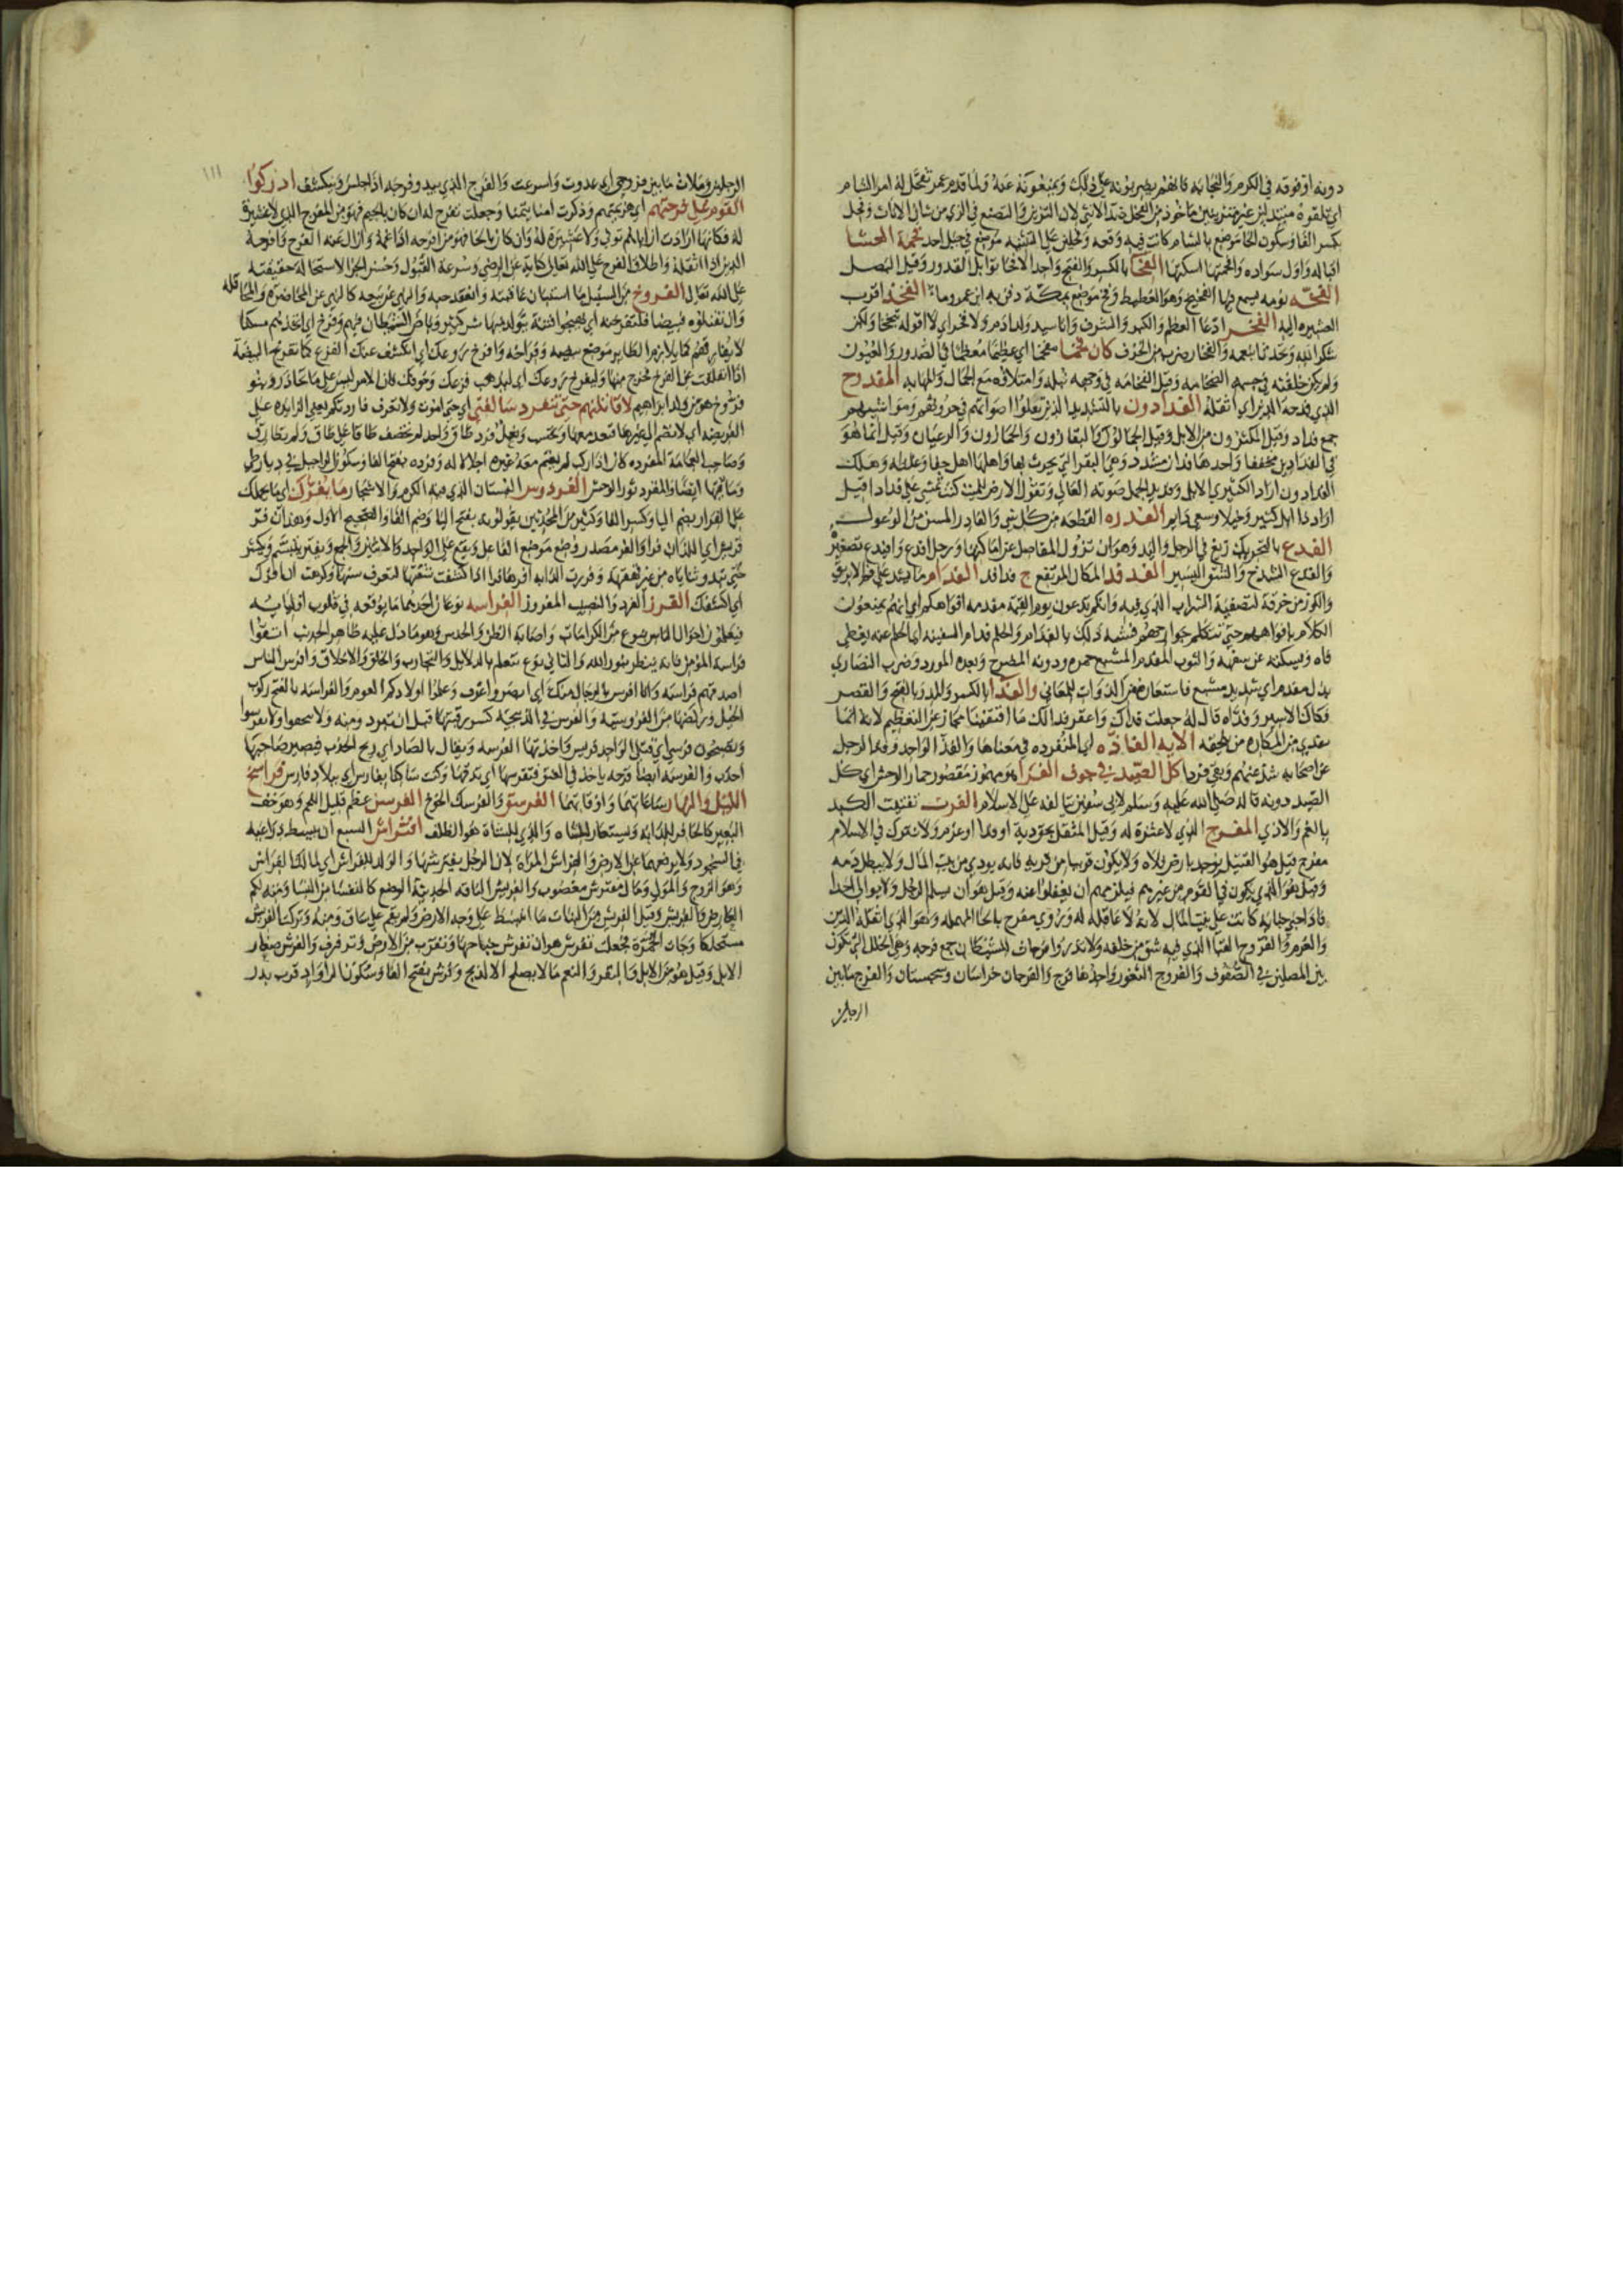 دونه او فوقه في الكرم والنجابة فانهم يضربونه على ذلك ويمنعونه عنه ولما قدم عمر تفحل له امرا الشام
اي تلقوه متبذلين غير متزينين ماخوذ من الفحل ضد الانثى لان التزين والتصنع في الزي من شان الاناث وفحل
بكسر الفا وسكون الحا موضع بالشام كانت فيه وقعة وفحلين على التثنية موضع في جبل احد فحمة العشا
اقباله واول سواده وافحمتها اسكنتها الفحا بالكسر والفتح واحد الافحا توابل القدور وقيل البصل
الفخة نومة يسمع فيها الفخيخ وهو الغطيط وفخ موضع بمكة دفن به ابن عمر وما الفخذ اقرب
العشيرة اليه الفخر ادعا العظم والكبر والشرف وانا سيد ولد ادم ولا فخر اي لا اقوله تبجحا ولكن
شكرا لله وتحدثا بنعمه والفخار ضرب من الخزف كان فخما مفخما اي عظيما معظما في الصدور والعيون
ولم يكن خلقته في جسمه الضخامة وقيل الفخامة في وجهه نبله وامتلاؤه مع الجمال والمهابة المفدوح
الذي فدحه الدين اي اثقله الفدادون بالتشديد الذين تعلوا اصواتهم في حروثهم ومواشيهم
جمع فداد وقيل المكثرون من الابل وقيل الجمالون والبقارون والحمارون والرعيان وقيل انما هو
في الفدادين مخففا واحدها فدان مشدد وهي البقر التي يحرث بها واهلها اهل جفا وغلظة وهلك
الفدادون اراد الكثيري الابل وفديد الجمل صوته العالي وتقول الارض للميت كنت تمشي علي فدادا قيل
اراد ذا امل كثير وخيلا وسعي دايم الفدرة القطعة من كل شي والفادر المسن من الوعول
الفدع بالتحريك زيغ في الرجل واليد وهو ان تزول المفاصل عن اماكنها ورجل افدع وافيدع تصغيره
والفدع الشدخ والشق اليسير الفدفد المكان المرتفع ج فدافد الفدام ما يشد على فم الابريق
والكوز من خرقة لتصفية الشراب الذي فيه وانكم تدعون يوم القيمة مفدمة افواهكم اي انهم يمنعون
الكلام بافواههم حتى تتكلم جوارحهم فشبه ذلك بالفدام والحلم فدام السفيه اي الحلم عنه يغطي
فاه ويسكته عن سفهه والثوب المفدم المشبع حمرة ودونه المضرج وبعده المورد وضرب النصارى
بذل مفدم اي شديد مشبع فاستعار من الذوات للمعاني والفدا بالكسر والمد وبالفتح والقصر
فكاك الاسير وفداه قال له جعلت فداك واغفر فدا لك ما اقتفينا مجاز عن التعظيم لانه انما
يفدي من المكاره من يلحقه الاية الفاذة اي المنفردة في معناها والفذ الواحد وفذ الرجل
عن اصحابه شذ عنهم وبقي فردا كل الصيد في جوف الفرا مهموز مقصور حمار الوحش اي كل
الصيد دونه قاله صلى الله عليه وسلم لابي سفين يتالفه على الاسلام الفرث تفتيت الكبد
بالغم والاذى المفرج الذي لا عشيرة له وقيل المثقل بحق دية او فدا او غرم ولا يترك في الاسلام
مفرج قيل هو القتيل يوجد بارض فلاة ولا يكون قريبا من قرية فانه يودى من بيت المال ولا يبطل دمه
وقيل هو الذي يكون في القوم من غيرهم فيلزمهم ان يعقلوا عنه وقيل هو ان يسلم الرجل ولا يوالي احدا
فاذا جنى جناية كانت على بيت المال لانه لا عاقلة له وروي مفرح بالحا المهملة وهو الذي اثقله الدين
والغرم والفروج القبا الذي فيه شق من خلفه ولا تذروا فرجات الشيطان جمع فرجة وهي الخلل التي تكون
بين المصلين في الصفوف والفروج الثغور واحدها فرج والفرجان خراسان وسجستان والفرج ما بين
الرجلين
١١١
الرجلين وملات ما بين فروجي اي عدوت واسرعت والفرج الذي يبدو فرجه اذا جلس وينكشف ادركوا
القوم على فرجتهم اي هزيمتهم وذكرت امنا يتمنا وجعلت تفرح له ان كان بالجيم فهو من المفرج الذي لا عشيرة
له فكانها ارادت ان اباهم توفي ولا عشيرة له وان كان بالحا فهو من افرحه اذا غمه وازال عنه الفرح وافرحه
الدين اذا اثقله واطلاق الفرح على الله تعالى كناية عن الرضى وسرعة القبول وحسن الجزا لاستحالة حقيقته
على الله تعالى الفروخ من السنبل ما استبان عاقبته وانعقد حبه والنهي عن بيعه كالنهي عن المخاضرة والمحاقلة
لا يفارقهم كما يلازم الطاير موضع بيضه وفراخه وافرخ روعك اي انكشف عنك الفزع كما تفرخ البيضة
اذا انفلقت عن الفرخ فخرج منها وليفرخ روعك اي ليذهب فزعك وخوفك فان الامر ليس على ما تحاذر وبنو
فروخ هو من ولد ابراهيم لاقاتلنهم حتى تنفرد سالفتي اي حتى اموت ولا تفرق فاردتكم يعني الزايدة على
وسايقها ايضا والمفرد ثور الوحش الفردوس البستان الذي فيه الكرم والاشجار ما يفرك اي ما يحملك
على الفرار بضم اليا وكسر الفا وكثير من المحدثين يقولونه بفتح اليا وضم الفا والصحيح الاول وهذان فر
قريش اي اللذان فرا والفر مصدر وضع موضع الفاعل ويقع على الواحد والاثنين والجمع ويفتر يتبسم ويكشر
حتى تبدو ثناياه من غير قهقهة وفررت الدابة افرها فرا اذا كشفت شفتها لتعرف سنها وكرهت ان افرك
اي اكشفك الفرز الفرد والنصيب المفروز الفراسة نوعان احدهما ما يوقعه في قلوب اوليايه
فيعلمون احوال الناس بنوع من الكرامات واصابة الظن والحدس وهو ما دل عليه ظاهر الحديث اتقوا
فراسة المؤمن فانه ينظر بنور الله والثاني نوع يتعلم بالدلايل والتجارب والخلق والاخلاق وافرس الناس
اصدقهم فراسة وانا افرس بالرجال منك اي ابصر واعرف وعلموا اولادكم العوم والفراسة بالفتح ركوب
الخيل وركضها من الفروسية والفرس في الذبيحة كسر رقبتها قبل ان تبرد ومنه ولا تنخعوا ولا تفرسوا
ويصبحون فرسى اي قتلى الواحد فريس واخذتها الفرسة ويقال بالصاد اي ريح الحدب فيصير صاحبها
احدب والفرسة ايضا قرحة ياخذ في العنق فتفرسها اي تدقها وكنت ساكنا بفارس اي ببلاد فارس فراسخ
الليل والنهار ساعاتهما واوقاتهما الفرسق والفرسك الخوخ الفرسن عظم قليل اللحم وهو خف
البعير كالحافر للدابة ويستعار للشاة والذي للشاة هو الظلف افتراش السبع ان يبسط ذراعيه
في السجود ولا يرفعهما عن الارض والفراش المراة لان الرجل يفترشها والولد للفراش اي لمالك الفراش
وهو الزوج والمولى ومال مفترش مغصوب والفريش الناقة الحديثة الوضع كالنفسا من النسا ومنه لكم
العارض والفريش وقيل الفريش من النبات ما انبسط على وجه الارض ولم يقم على ساق ومنه وتركت الفريش
مستحلكا وجات الحمرة فجعلت تفرش هو ان تفرش جناحيها وتقرب من الارض وترفرف والفرش صغار
الابل وقيل هو من الابل والبقر والنعم ما لا يصلح الا للذبح وفرش بفتح الفا وسكون الرا واد قرب بدر